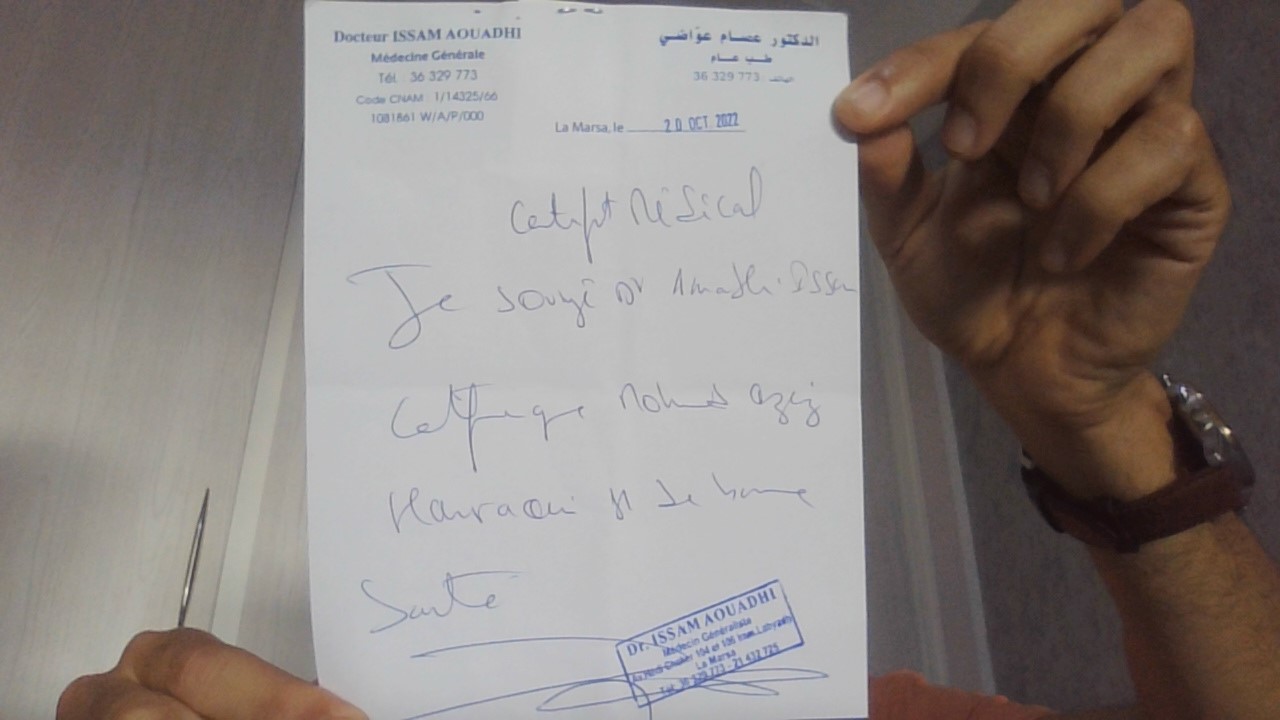 Docteur ISSAM AOUADHI
Médecine Générale
Tél. 36 329 773
Code CNAM : 1/14325/66
1081861 W/A/P/000
الدكتور عصام عوّاضي
طب عام
36 329 773 الهاتف
La Marsa, le 20 OCT. 2022
Certificat Médical
Je soussigné Dr Aouadhi Issam
Certifie que Mohamed Aziz
et de bonne
Santé
Dr. ISSAM AOUADHI
Médecin Généraliste
104 et 106
La Marsa
Tél: 36 329 773 - 21 432 725